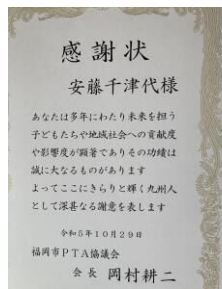 感謝状
安藤千津代様
あなたは多年にわたり未来を担う
子どもたちや地域社会への貢献度
や影響度が顕著でありその功績は
誠に大なるものがあります
よってここにきらりと輝く九州人
として深甚なる謝意を表します
令和5年10月29日
福岡市PTA協議会
会長 岡村耕二